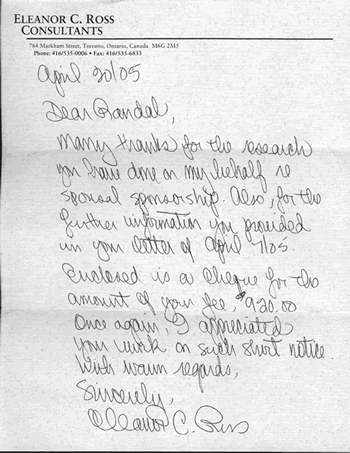 ELEANOR C. ROSS
CONSULTANTS
784 Markham Street, Toronto, Ontario, Canada M6G 2M5
Phone: 416/535-0006 • Fax: 416/535-6833
April 20/05
Dear Randal,
Many thanks for the research
you have done on my behalf re
spousal sponsorship. Also, for the
further information you provided
in your letter of April 7/05.
Enclosed is a cheque for the
amount of your fee, $920.00
Once again, I appreciated
your work on such short notice.
With warm regards,
Sincerely,
Eleanor C. Ross